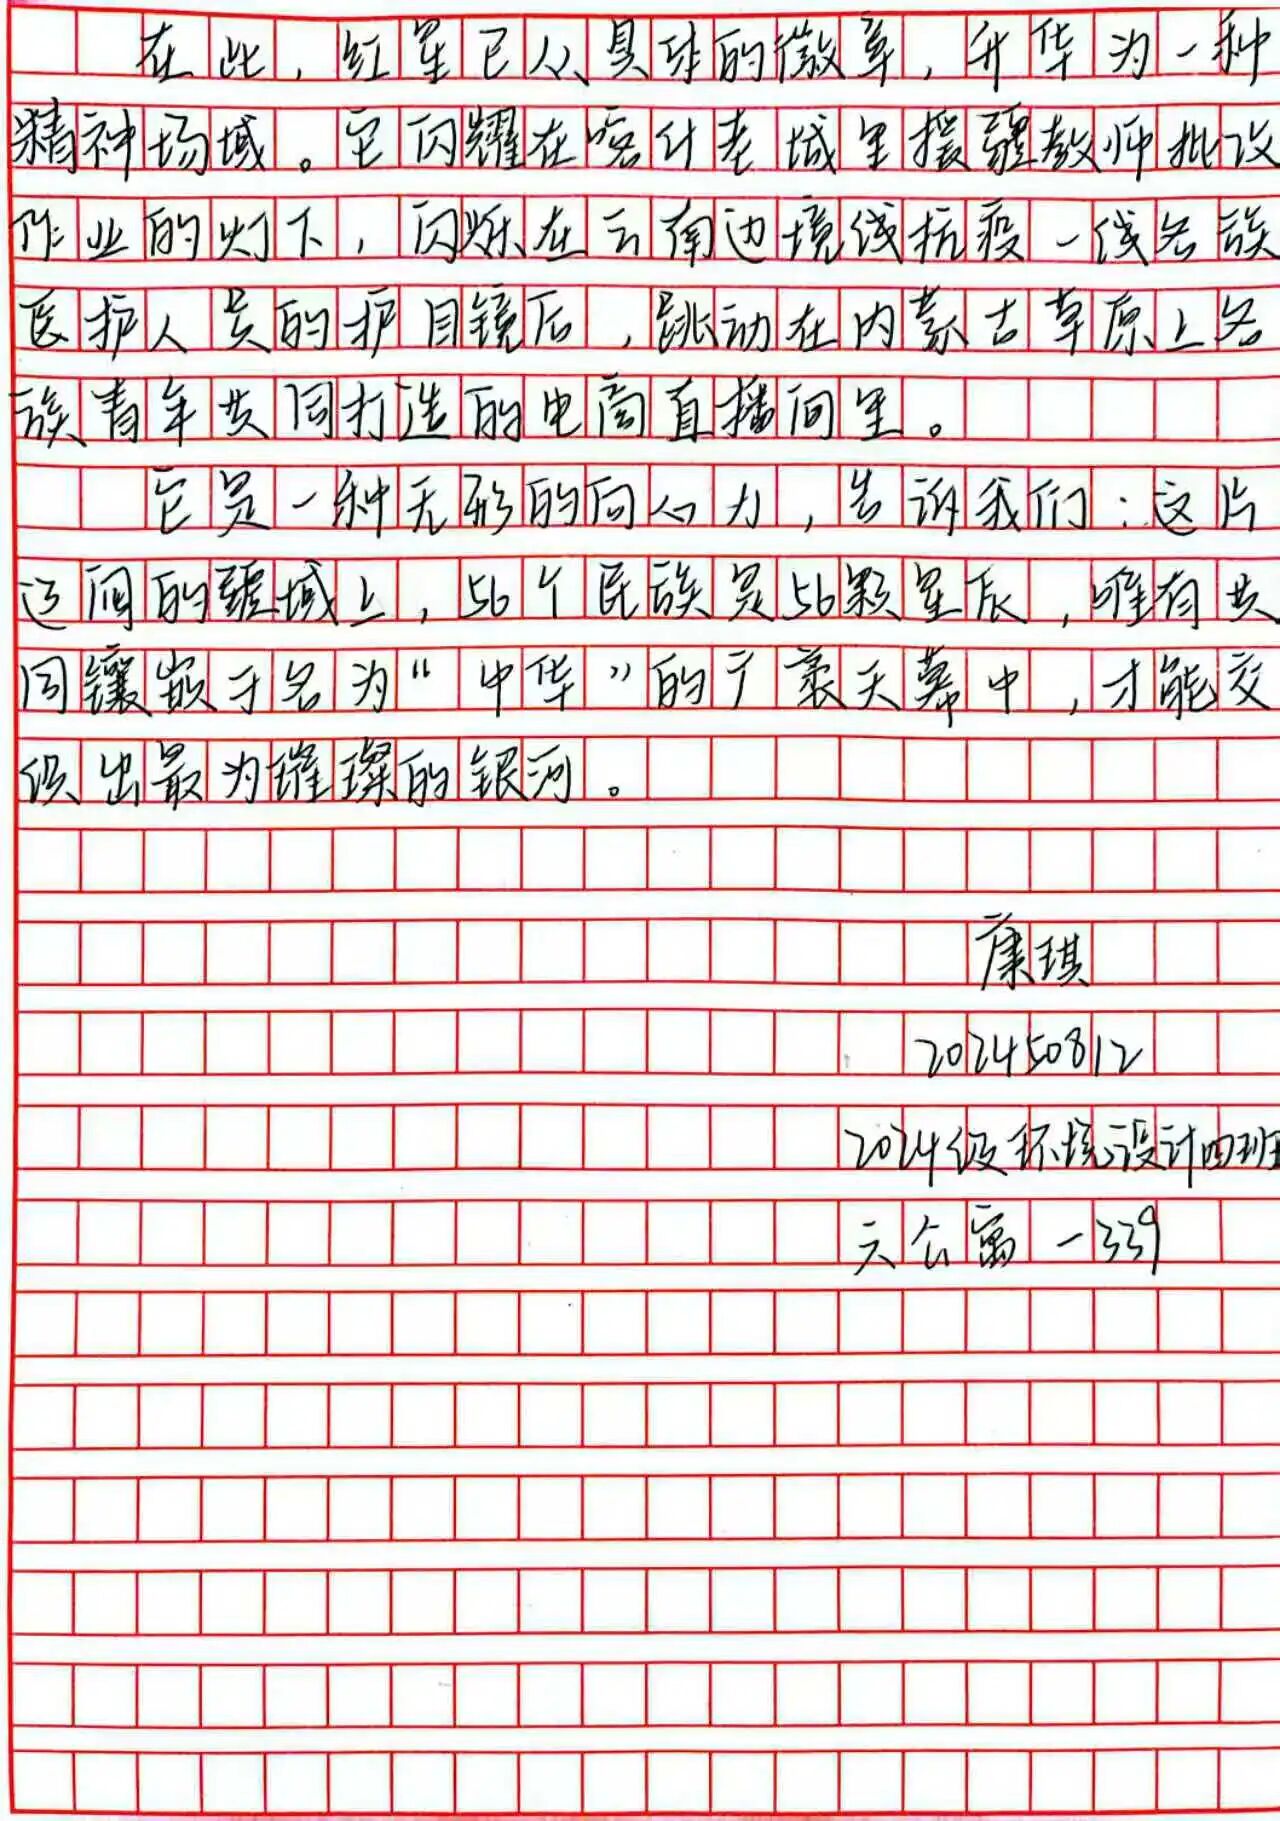 在此，红星已从具球的徽章，升华为一种
精神场域。它闪耀在喀什老城里援疆教师批改
作业的灯下，闪烁在云南边境线抗疫一线各族
医护人员的护目镜后，跳动在内蒙古草原上各
族青年共同打造的电商直播间里。
它是一种无形的向心力，告诉我们：这片
辽阔的疆域上，56个民族是56颗星辰，唯有共
同镶嵌于名为“中华”的广袤天幕中，才能交
织出最为璀璨的银河。
康琪
202450812
2024级环境设计四班
六公寓一339